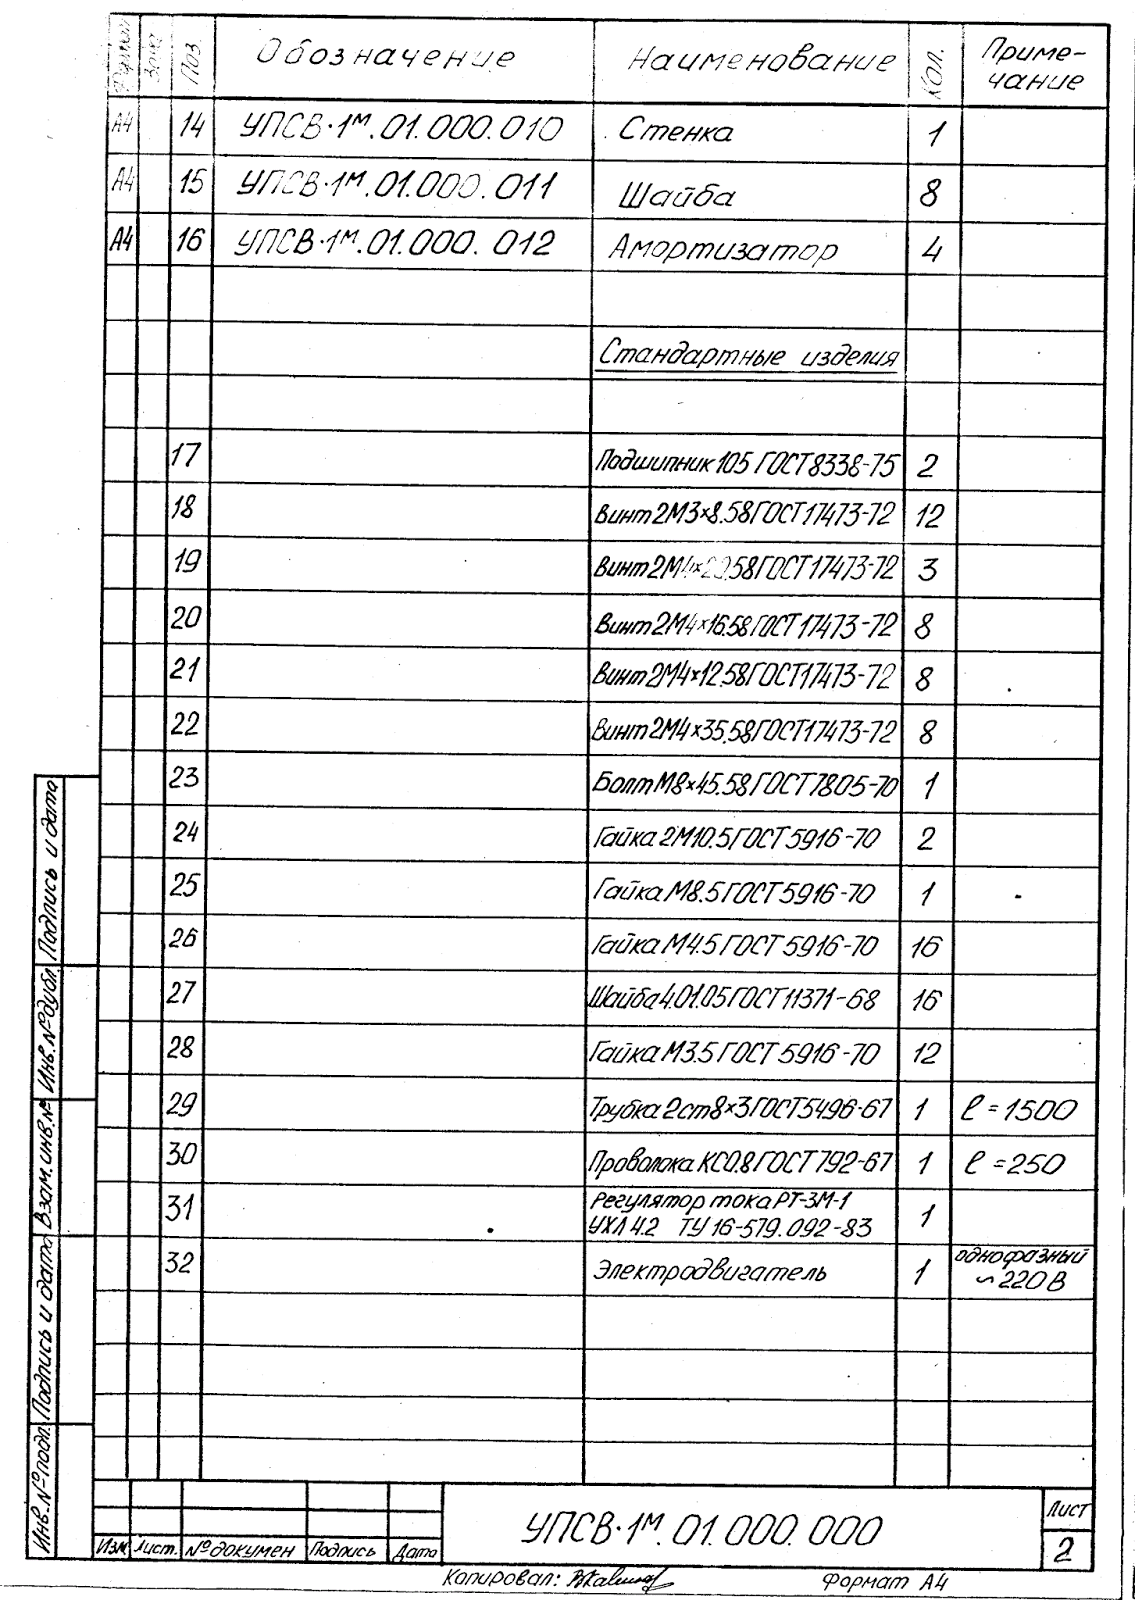 Формат Зона Поз Обозначение Наименование Кол. Приме-
чание
А4 14 УПСВ·1М.01.000.010 Стенка 1
А4 15 УПСВ·1М.01.000.011 Шайба 8
А4 16 УПСВ·1М.01.000.012 Амортизатор 4
Стандартные изделия
17 Подшипник 105 ГОСТ 8338-75 2
18 Винт 2М3×8.58 ГОСТ 17473-72 12
19 Винт 2М4×20.58 ГОСТ 17473-72 3
20 Винт 2М4×16.58 ГОСТ 17473-72 8
21 Винт 2М4×12.58 ГОСТ 17473-72 8
22 Винт 2М4×35.58 ГОСТ 17473-72 8
23 Болт М8×45.58 ГОСТ 7805-70 1
24 Гайка 2М10.5 ГОСТ 5916-70 2
25 Гайка М8.5 ГОСТ 5916-70 1
26 Гайка М4.5 ГОСТ 5916-70 16
27 Шайба 4.01.05 ГОСТ 11371-68 16
28 Гайка М3.5 ГОСТ 5916-70 12
29 Трубка 2ст8×3 ГОСТ 5496-67 1 ℓ=1500
30 Проволока КС0.8 ГОСТ 792-67 1 ℓ=250
31 Регулятор тока РТ-3М-1
УХЛ 4.2 ТУ 16-579.092-83 1
32 Электродвигатель 1 однофазный
~220В
Инв.№подл. Подпись и дата Взам.инв.№ Инв.№дубл. Подпись и дата
Изм Лист. №докумен Подпись Дата
УПСВ·1М.01.000.000
Лист
2
Копировал:
Формат А4